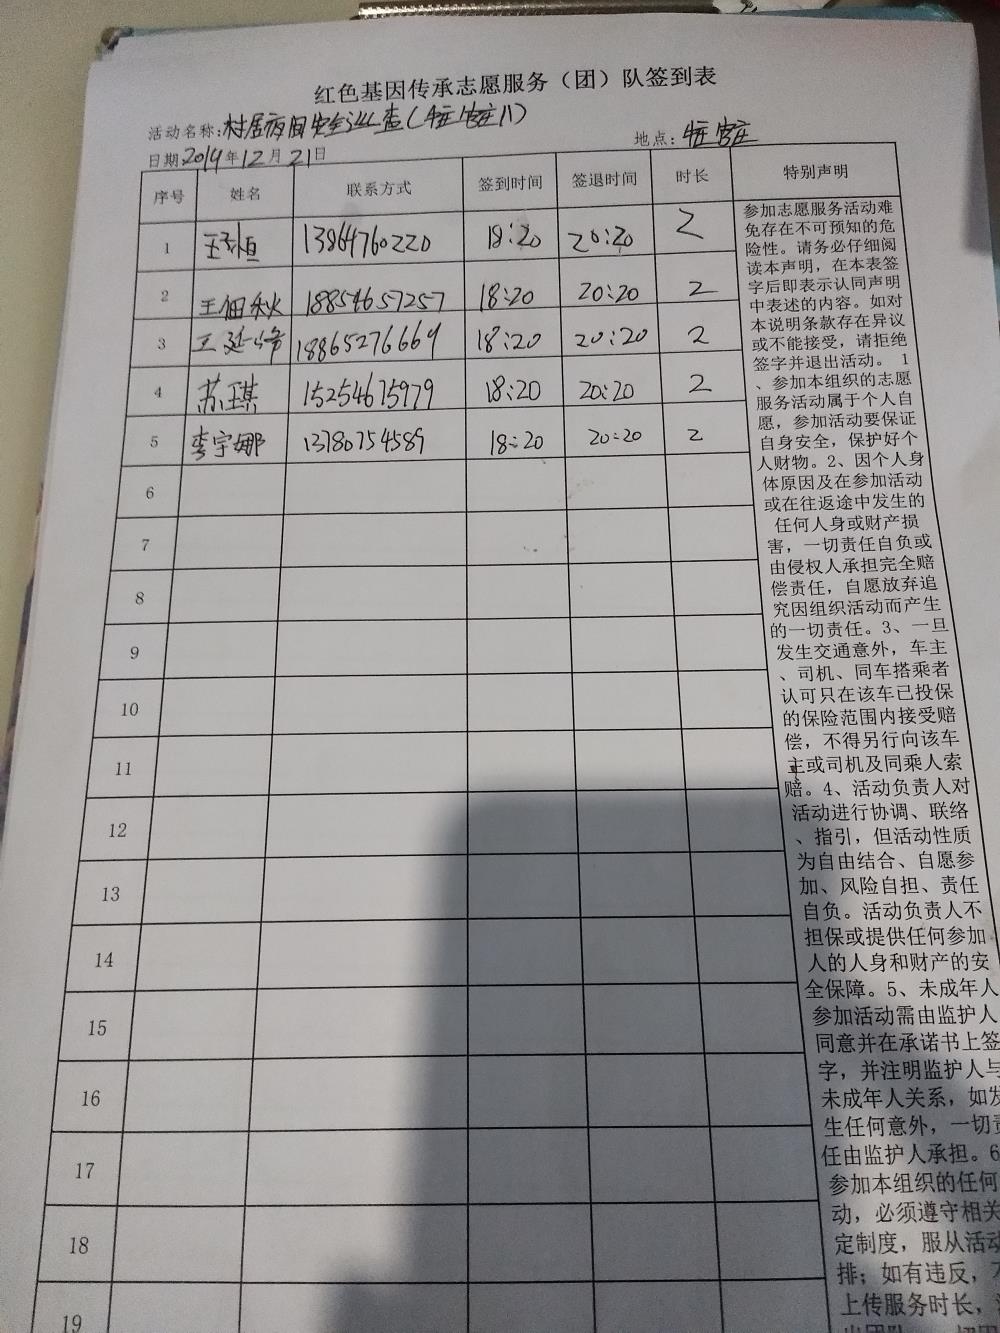 红色基因传承志愿服务（团）队签到表
活动名称:村居夜间安全巡查(
地点:
日期2019年12月21日
序号 姓名 联系方式 签到时间 签退时间 时长 特别声明
1 13864760220 18:20 20:20 2
2 王佃秋 18854657257 18:20 20:20 2
3 王延 18865276669 18:20 20:20 2
4 苏琪 15254675979 18:20 20:20 2
5 李宇娜 13780754589 18:20 20:20 2
6
7
8
9
10
11
12
13
14
15
16
17
18
19
参加志愿服务活动难
免存在不可预知的危
险性。请务必仔细阅
读本声明，在本表签
字后即表示认同声明
中表述的内容。如对
本说明条款存在异议
或不能接受，请拒绝
签字并退出活动。 1
、参加本组织的志愿
服务活动属于个人自
愿，参加活动要保证
自身安全，保护好个
人财物。2、因个人身
体原因及在参加活动
或在往返途中发生的
任何人身或财产损
害，一切责任自负或
由侵权人承担完全赔
偿责任，自愿放弃追
究因组织活动而产生
的一切责任。3、一旦
发生交通意外，车主
、司机、同车搭乘者
认可只在该车已投保
的保险范围内接受赔
偿，不得另行向该车
主或司机及同乘人索
赔。4、活动负责人对
活动进行协调、联络
、指引，但活动性质
为自由结合、自愿参
加、风险自担、责任
自负。活动负责人不
担保或提供任何参加
人的人身和财产的安
全保障。5、未成年人
参加活动需由监护人
同意并在承诺书上签
字，并注明监护人与
未成年人关系，如发
生任何意外，一切责
任由监护人承担。6
参加本组织的任何
动，必须遵守相关
定制度，服从活动
排；如有违反，不
上传服务时长，